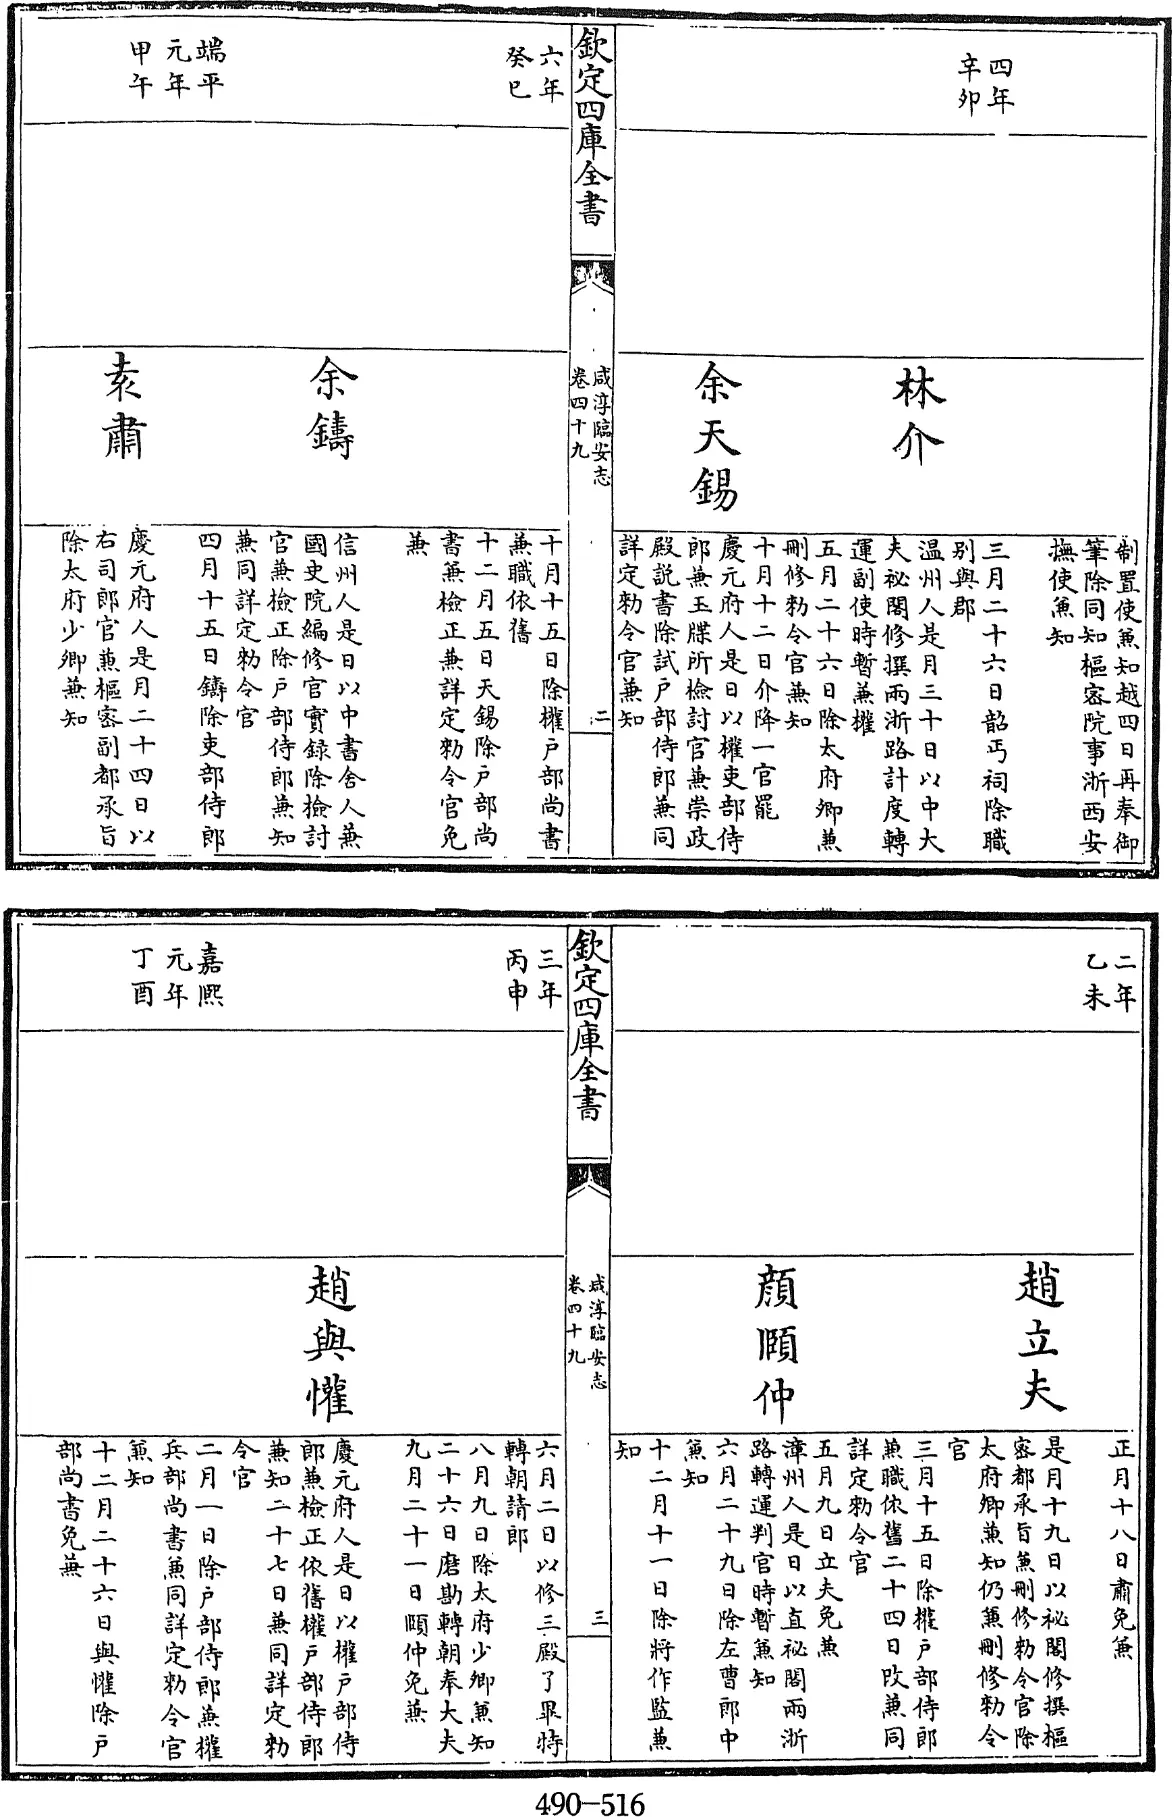 四年
辛卯
林介
余天錫
制置使兼知越四日再奉御
筆除同知樞密院事浙西安
撫使兼知
三月二十六日韶丐祠除職
别與郡
温州人是月三十日以中大
夫祕閣修撰兩浙路計度轉
運副使時暫兼權
五月二十六日除太府卿兼
刪修勅令官兼知
十月十二日介降一官罷
慶元府人是日以權吏部侍
郎兼玉牒所檢討官兼崇政
殿説書除試户部侍郎兼同
詳定勅令官兼知
欽定四庫全書
咸淳臨安志
卷四十九
二
六年
癸巳
端平
元年
甲午
余鑄
袁肅
十月十五日除權户部尚書
兼職依舊
十二月五日天錫除户部尚
書兼檢正兼詳定勅令官免
兼
信州人是日以中書舍人兼
國史院編修官實録除檢討
官兼檢正除户部侍郎兼知
兼同詳定勅令官
四月十五日鑄除吏部侍郎
慶元府人是月二十四日以
右司郎官兼樞密副都承旨
除太府少卿兼知
二年
乙未
趙立夫
顔頤仲
正月十八日肅免兼
是月十九日以祕閣修撰樞
密都承旨兼刪修勅令官除
太府卿兼知仍兼刪修勅令
官
三月十五日除權户部侍郎
兼職依舊二十四日改兼同
詳定勅令官
五月九日立夫免兼
漳州人是日以直祕閣兩浙
路轉運判官時暫兼知
六月二十九日除左曹郎中
兼知
十二月十一日除將作監兼
知
欽定四庫全書
咸淳臨安志
卷四十九
三
三年
丙申
嘉熙
元年
丁酉
趙與懽
六月二日以修三殿了畢特
轉朝請郎
八月九日除太府少卿兼知
二十六日磨勘轉朝奉大夫
九月二十一日頤仲免兼
慶元府人是日以權户部侍
郎兼檢正依舊權户部侍郎
兼知二十七日兼同詳定勅
令官
二月一日除户部侍郎兼權
兵部尚書兼同詳定勅令官
兼知
十二月二十六日與懽除户
部尚書免兼
490-516